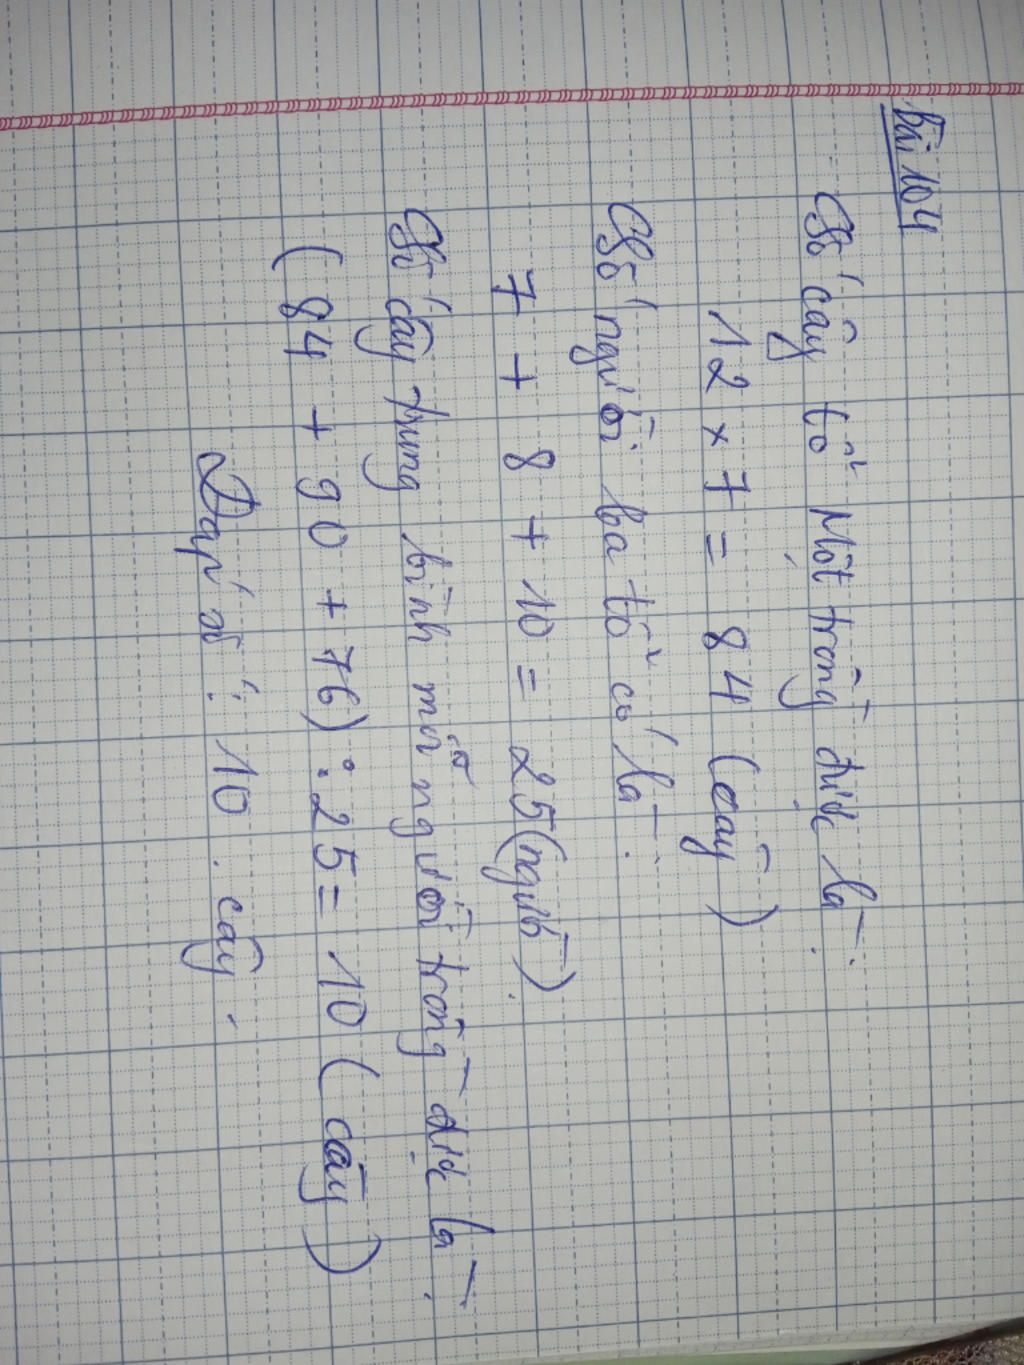 Bài 104
Số cây tổ Một trồng được là:
12 × 7 = 84 (cây)
Số người ba tổ có là:
7 + 8 + 10 = 25 (người)
Số cây trung bình mỗi người trồng được là:
(84 + 90 + 76) : 25 = 10 (cây)
Đáp số: 10 cây.